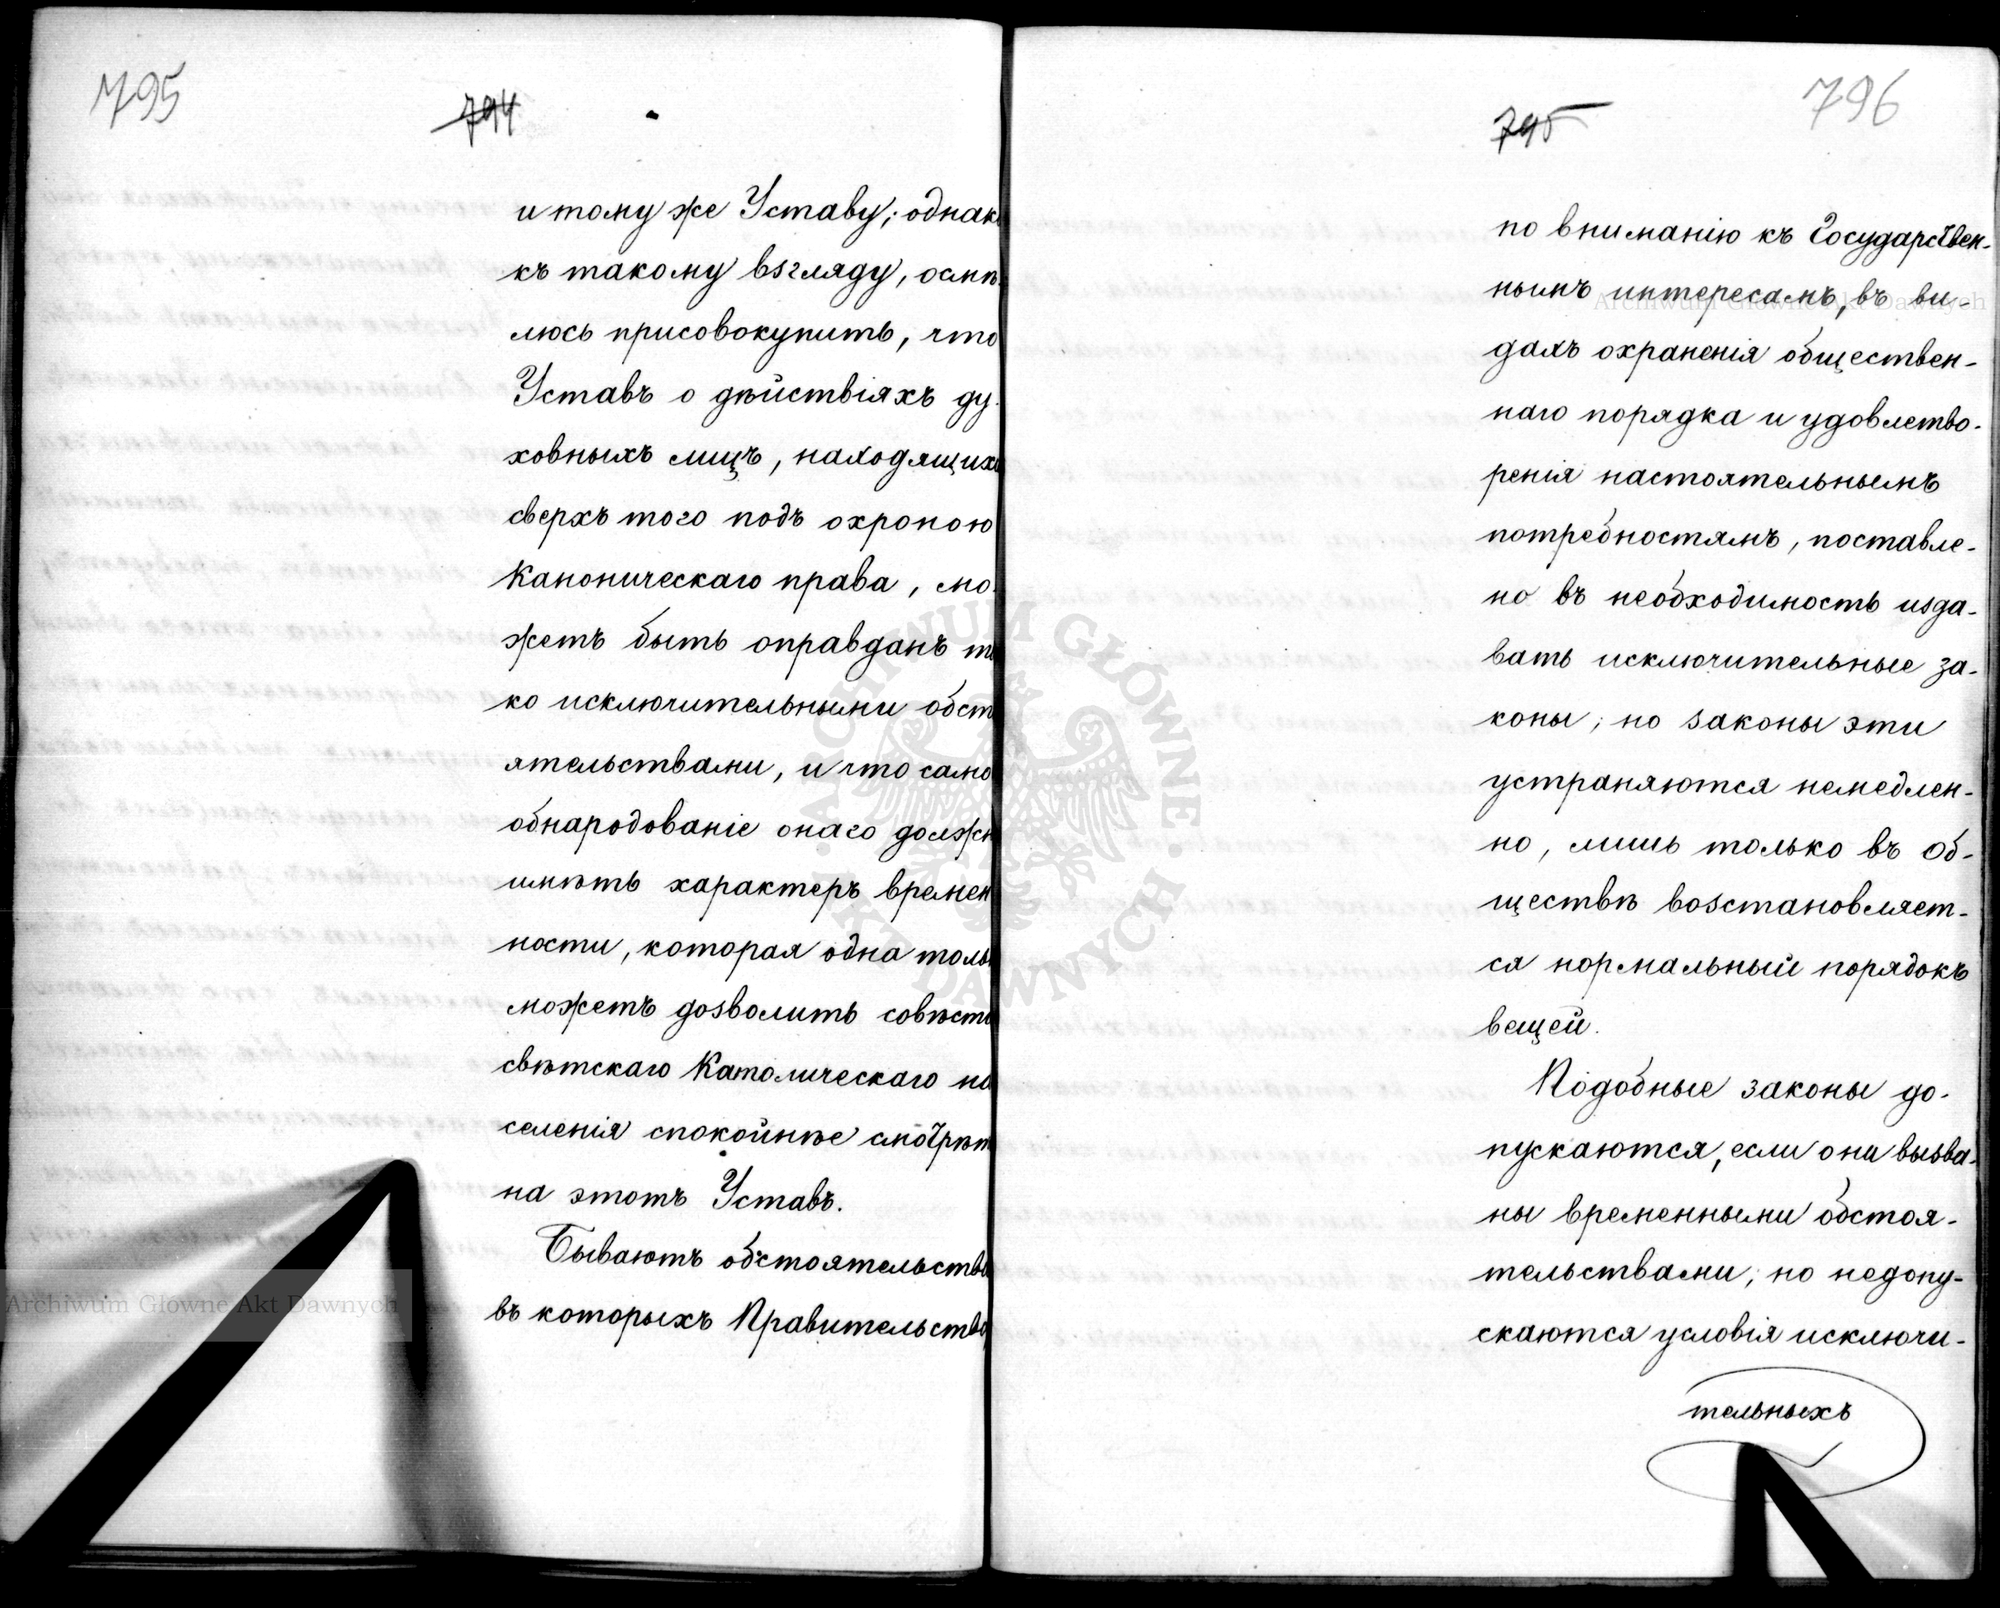 795
794
и тому же Уставу; однако
къ такому взгляду, осмѣ-
люсь присовокупить, что
Уставъ о дѣйствіяхъ ду-
ховныхъ лицъ, находящихся
сверхъ того подъ охроною
Каноническаго права, мо-
жетъ быть оправданъ то
ко исключительными обсто
ятельствами, и что само
обнародованіе онаго должн
имѣть характеръ времен
ности, которая одна толь
можетъ дозволить совѣсти
свѣтскаго Католическаго на
селенія спокойнѣе смотрѣт
на этотъ Уставъ.
Бываютъ обстоятельства
въ которыхъ Правительство,
796
795
по вниманію къ Государствен-
нымъ интересамъ, въ ви-
дахъ охраненія обществен-
наго порядка и удовлетво-
ренія настоятельнымъ
потребностямъ, поставле-
но въ необходимость изда-
вать исключительные за-
коны; но законы эти
устраняются немедлен-
но, лишь только въ об-
ществѣ возстановляет-
ся нормальный порядокъ
вещей.
Подобные законы до-
пускаются, если они вызва-
ны временными обстоя-
тельствами; но недопу-
скаются условія исключи-
тельныхъ
Archiwum Główne Akt Dawnych
Archiwum Główne Akt Dawnych
ARCHIWUM GŁÓWNE AKT DAWNYCH